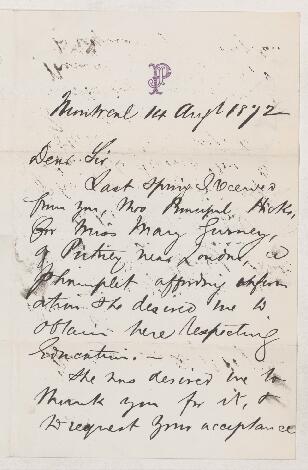 Montreal 14 Augt 1872
Dear Sir
Last Spring I received
from you, thro Principal Hicks,
for Miss Mary Gurney,
of Putney near London, a
phamplet affording inform
ation she desired me to
obtain here respecting
Education. —
She has desired me to
thank you for it, &
to request your acceptance